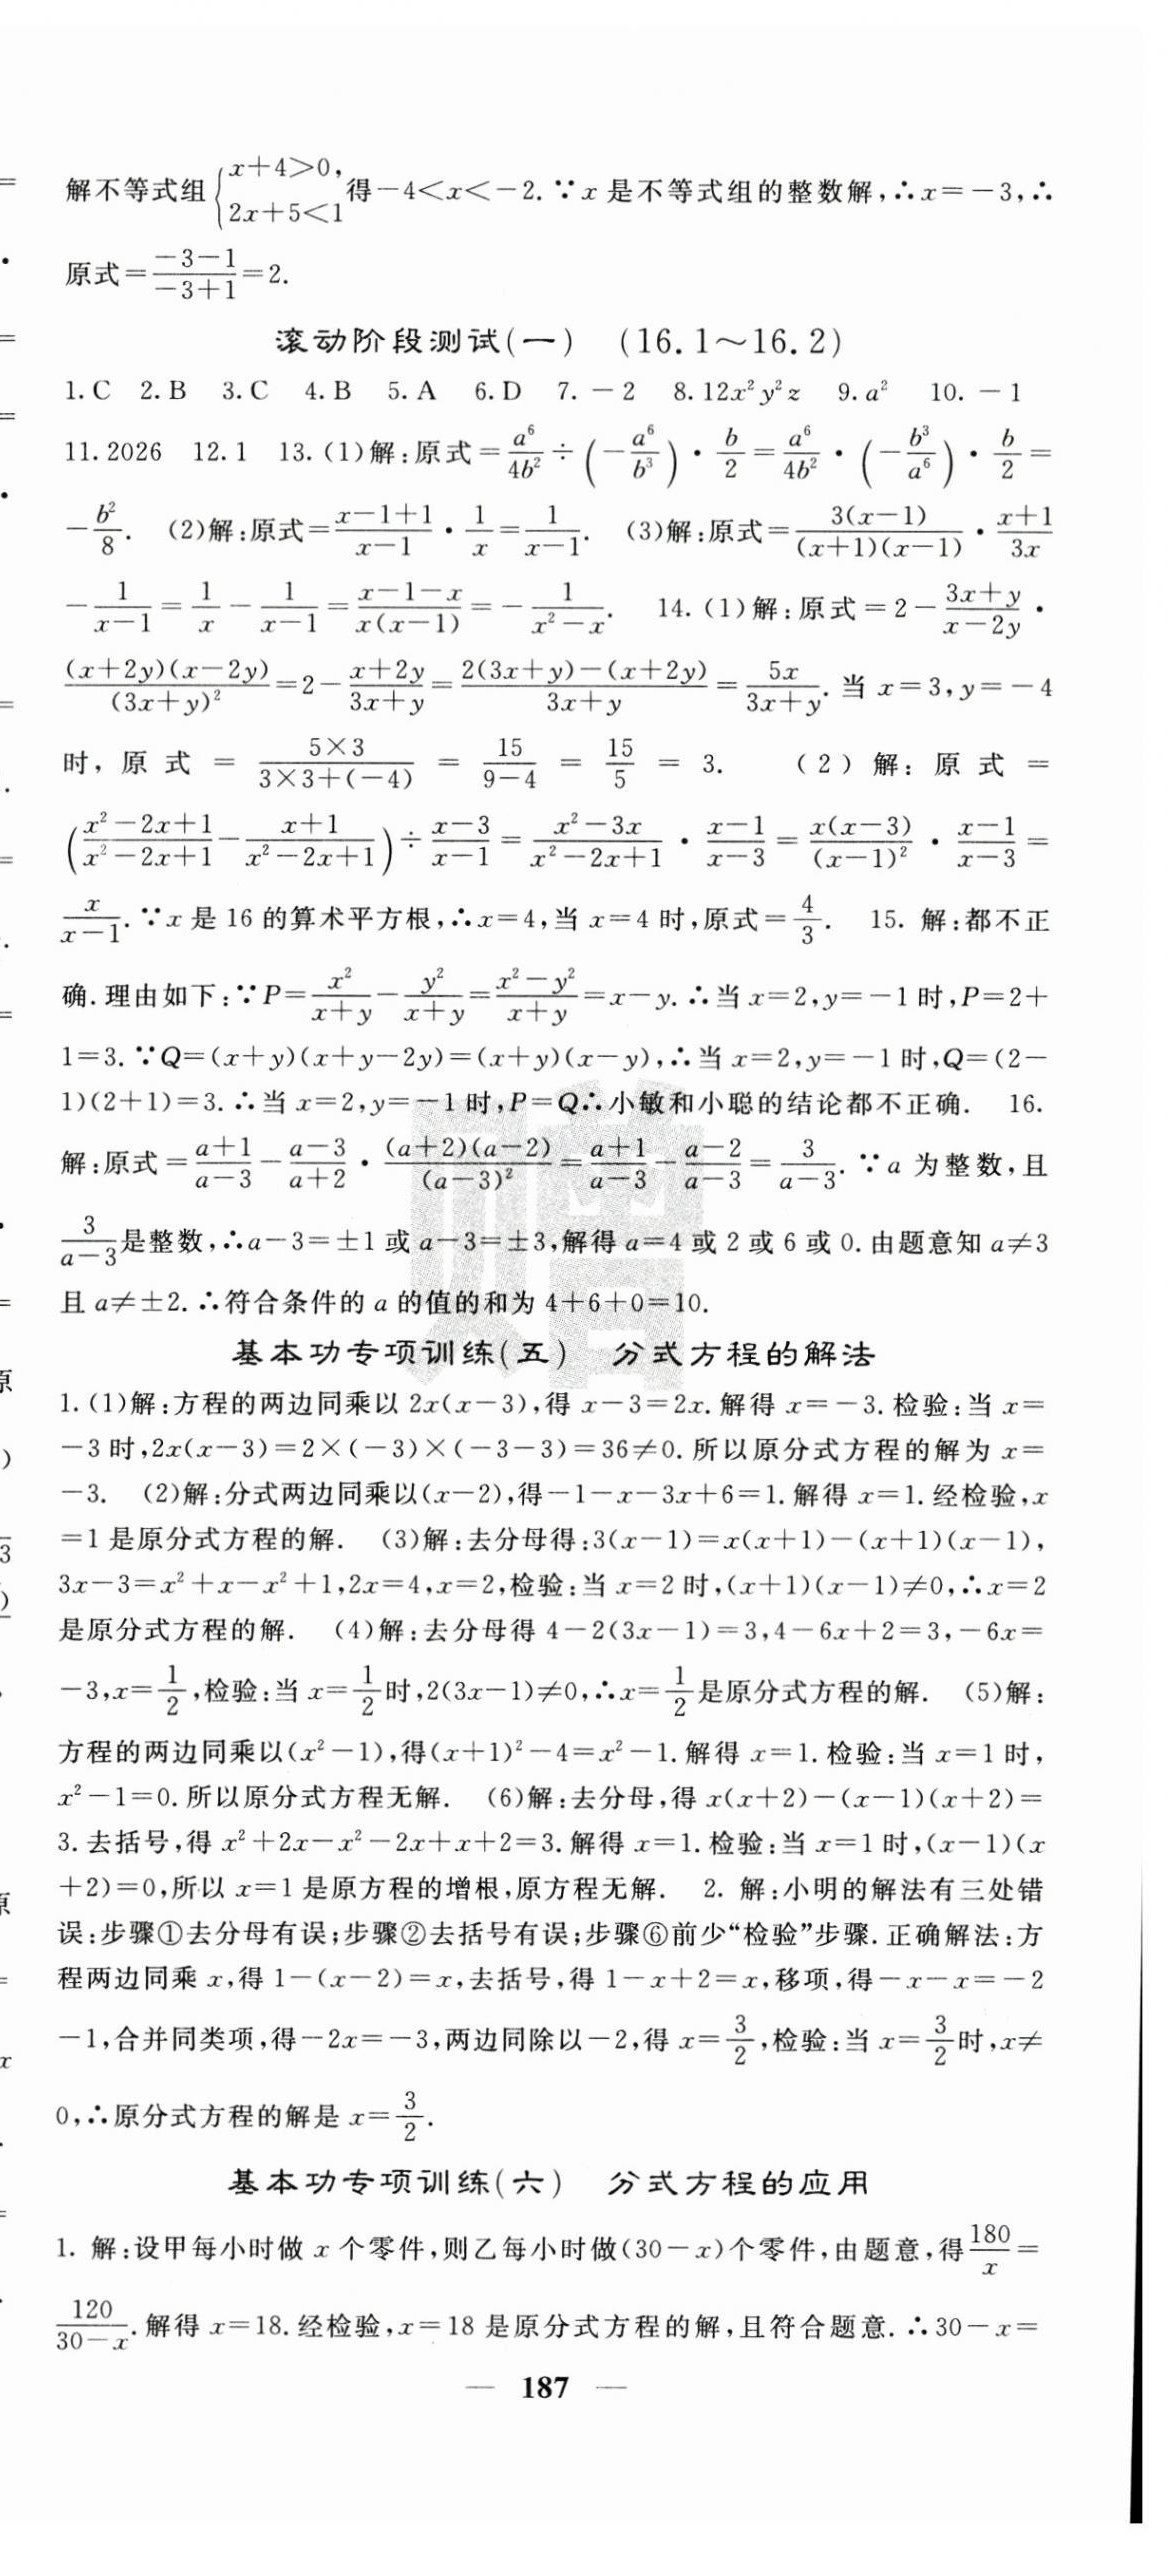 解不等式组{x+4>0, 2x+5<1 得-4<x<-2.∵x是不等式组的整数解,∴x=-3,∴
原式=\frac{-3-1}{-3+1}=2.
滚动阶段测试(一) (16.1～16.2)
1.C 2.B 3.C 4.B 5.A 6.D 7.-2 8.12x²y²z 9.a² 10.-1
11.2026 12.1 13.(1)解:原式=\frac{a⁶}{4b²}÷(-\frac{a⁶}{b³})·\frac{b}{2}=\frac{a⁶}{4b²}·(-\frac{b³}{a⁶})·\frac{b}{2}=
-\frac{b²}{8}. (2)解:原式=\frac{x-1+1}{x-1}·\frac{1}{x}=\frac{1}{x-1}. (3)解:原式=\frac{3(x-1)}{(x+1)(x-1)}·\frac{x+1}{3x}
-\frac{1}{x-1}=\frac{1}{x}-\frac{1}{x-1}=\frac{x-1-x}{x(x-1)}=-\frac{1}{x²-x}. 14.(1)解:原式=2-\frac{3x+y}{x-2y}·
\frac{(x+2y)(x-2y)}{(3x+y)²}=2-\frac{x+2y}{3x+y}=\frac{2(3x+y)-(x+2y)}{3x+y}=\frac{5x}{3x+y}.当x=3,y=-4
时,原式=\frac{5×3}{3×3+(-4)}=\frac{15}{9-4}=\frac{15}{5}=3. (2)解:原式=
(\frac{x²-2x+1}{x²-2x+1}-\frac{x+1}{x²-2x+1})÷\frac{x-3}{x-1}=\frac{x²-3x}{x²-2x+1}·\frac{x-1}{x-3}=\frac{x(x-3)}{(x-1)²}·\frac{x-1}{x-3}=
\frac{x}{x-1}.∵x是16的算术平方根,∴x=4,当x=4时,原式=\frac{4}{3}. 15.解:都不正
确.理由如下:∵P=\frac{x²}{x+y}-\frac{y²}{x+y}=\frac{x²-y²}{x+y}=x-y.∴当x=2,y=-1时,P=2+
1=3.∵Q=(x+y)(x+y-2y)=(x+y)(x-y),∴当x=2,y=-1时,Q=(2-
1)(2+1)=3.∴当x=2,y=-1时,P=Q∴小敏和小聪的结论都不正确. 16.
解:原式=\frac{a+1}{a-3}-\frac{a-3}{a+2}·\frac{(a+2)(a-2)}{(a-3)²}=\frac{a+1}{a-3}-\frac{a-2}{a-3}=\frac{3}{a-3}.∵a为整数,且
\frac{3}{a-3}是整数,∴a-3=±1或a-3=±3,解得a=4或2或6或0.由题意知a≠3
且a≠±2.∴符合条件的a的值的和为4+6+0=10.
基本功专项训练(五) 分式方程的解法
1.(1)解:方程的两边同乘以2x(x-3),得x-3=2x.解得x=-3.检验:当x=
-3时,2x(x-3)=2×(-3)×(-3-3)=36≠0.所以原分式方程的解为x=
-3. (2)解:分式两边同乘以(x-2),得-1-x-3x+6=1.解得x=1.经检验,x
=1是原分式方程的解. (3)解:去分母得:3(x-1)=x(x+1)-(x+1)(x-1),
3x-3=x²+x-x²+1,2x=4,x=2,检验:当x=2时,(x+1)(x-1)≠0,∴x=2
是原分式方程的解. (4)解:去分母得4-2(3x-1)=3,4-6x+2=3,-6x=
-3,x=\frac{1}{2},检验:当x=\frac{1}{2}时,2(3x-1)≠0,∴x=\frac{1}{2}是原分式方程的解. (5)解:
方程的两边同乘以(x²-1),得(x+1)²-4=x²-1.解得x=1.检验:当x=1时,
x²-1=0.所以原分式方程无解. (6)解:去分母,得x(x+2)-(x-1)(x+2)=
3.去括号,得x²+2x-x²-2x+x+2=3.解得x=1.检验:当x=1时,(x-1)(x
+2)=0,所以x=1是原方程的增根,原方程无解. 2.解:小明的解法有三处错
误:步骤①去分母有误;步骤②去括号有误;步骤⑥前少“检验”步骤.正确解法:方
程两边同乘x,得1-(x-2)=x,去括号,得1-x+2=x,移项,得-x-x=-2
-1,合并同类项,得-2x=-3,两边同除以-2,得x=\frac{3}{2},检验:当x=\frac{3}{2}时,x≠
0,∴原分式方程的解是x=\frac{3}{2}.
基本功专项训练(六) 分式方程的应用
1.解:设甲每小时做x个零件,则乙每小时做(30-x)个零件,由题意,得\frac{180}{x}=
\frac{120}{30-x}.解得x=18.经检验,x=18是原分式方程的解,且符合题意.∴30-x=
— 187 —